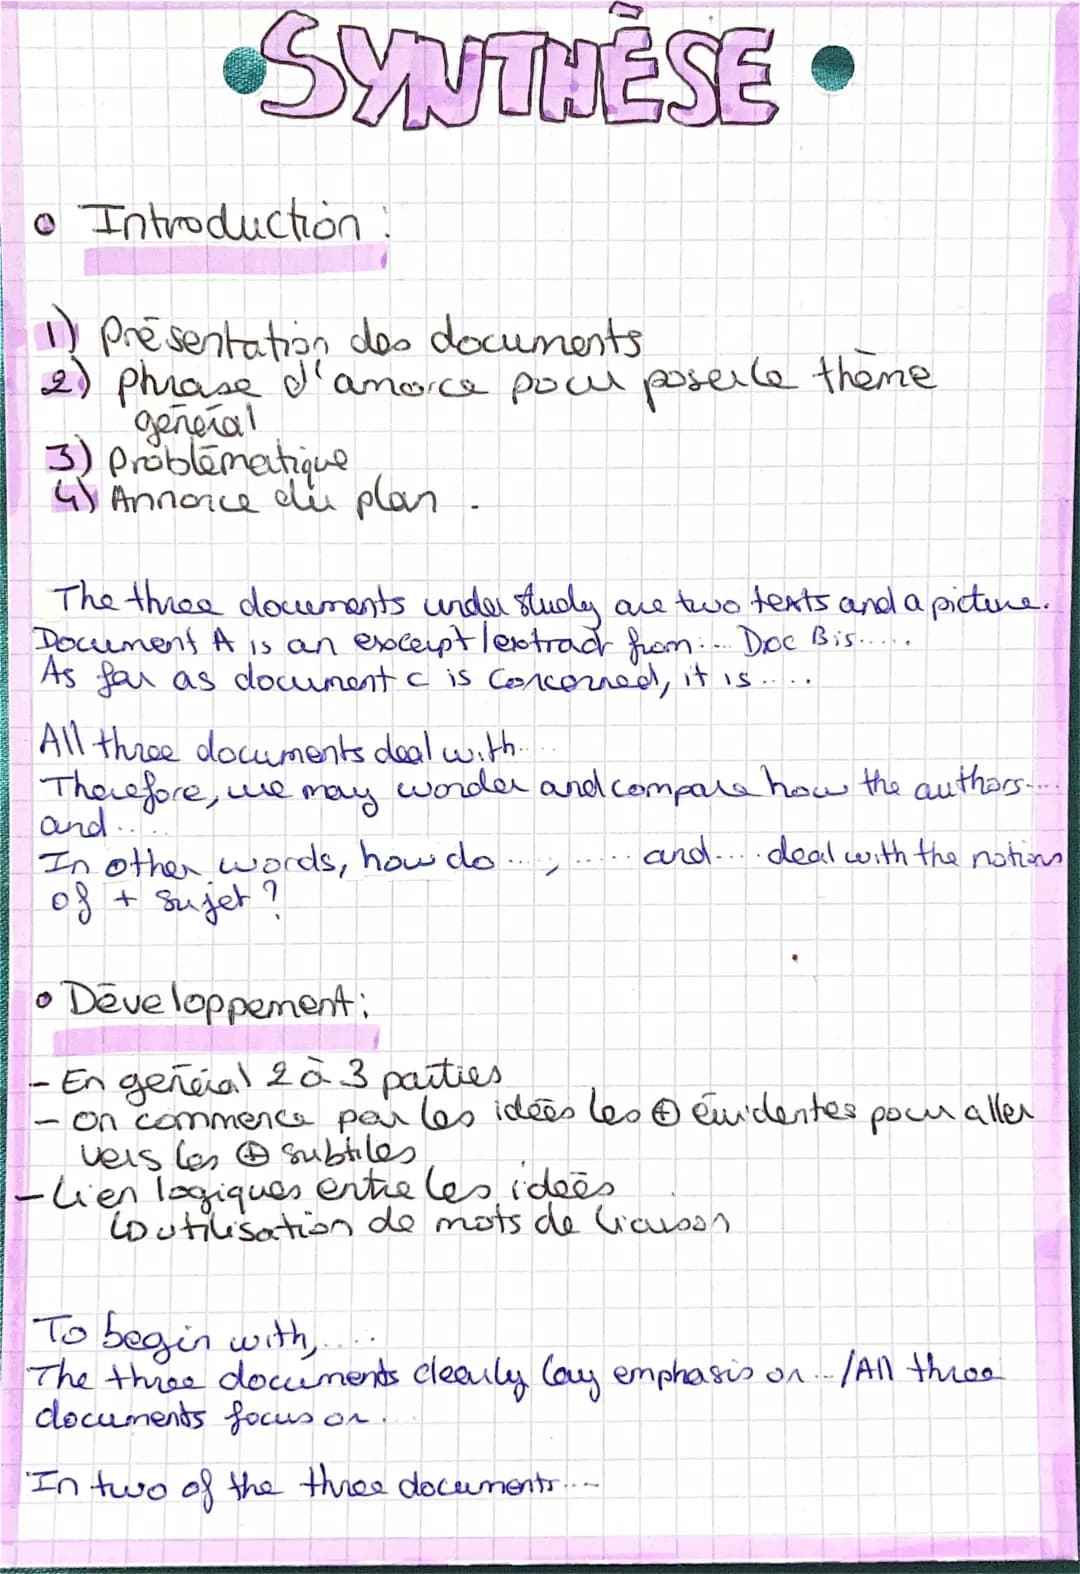 SYNTHÈSE
Introduction :
1) Présentation des documents
2) phrase d'amorce pour poser le thème
général
3) Problématique
4) Annonce du plan.
The three documents under study are two texts and a picture.
Document A is an excerpt/extract from... Doc B is.....
As far as document C is concerned, it is....
All three documents deal with....
Therefore, we may wonder and compare how the authors....
and....
In other words, how do ...., ..... and.... deal with the notions
of + sujet ?
Développement :
- En général 2 à 3 parties
- on commence par les idées les ⊕ évidentes pour aller
vers les ⊕ subtiles
- Lien logiques entre les idées
↳ utilisation de mots de liaison
To begin with,....
The three documents clearly lay emphasis on.../All three
documents focus on.
In two of the three documents....